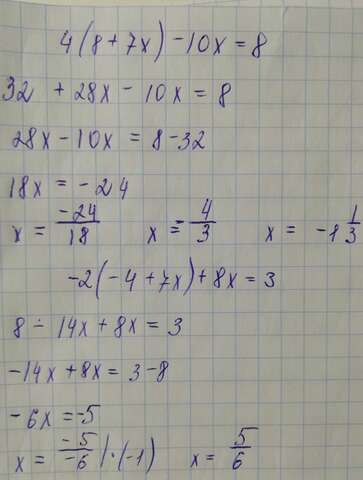 4(8+7x)-10x=8
32 + 28x - 10x = 8
28x-10x = 8-32
18x = -24
x = -24/18   x = -4/3   x = -1 1/3
-2(-4+7x)+8x=3
8 - 14x + 8x = 3
-14x + 8x = 3-8
-6x = -5
x = -5/-6 |·(-1)   x = 5/6